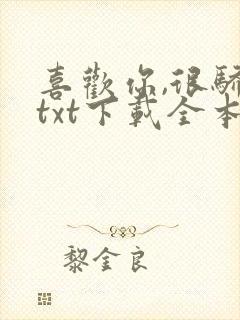 喜歡你,很驕
txt下載全本
黎金良